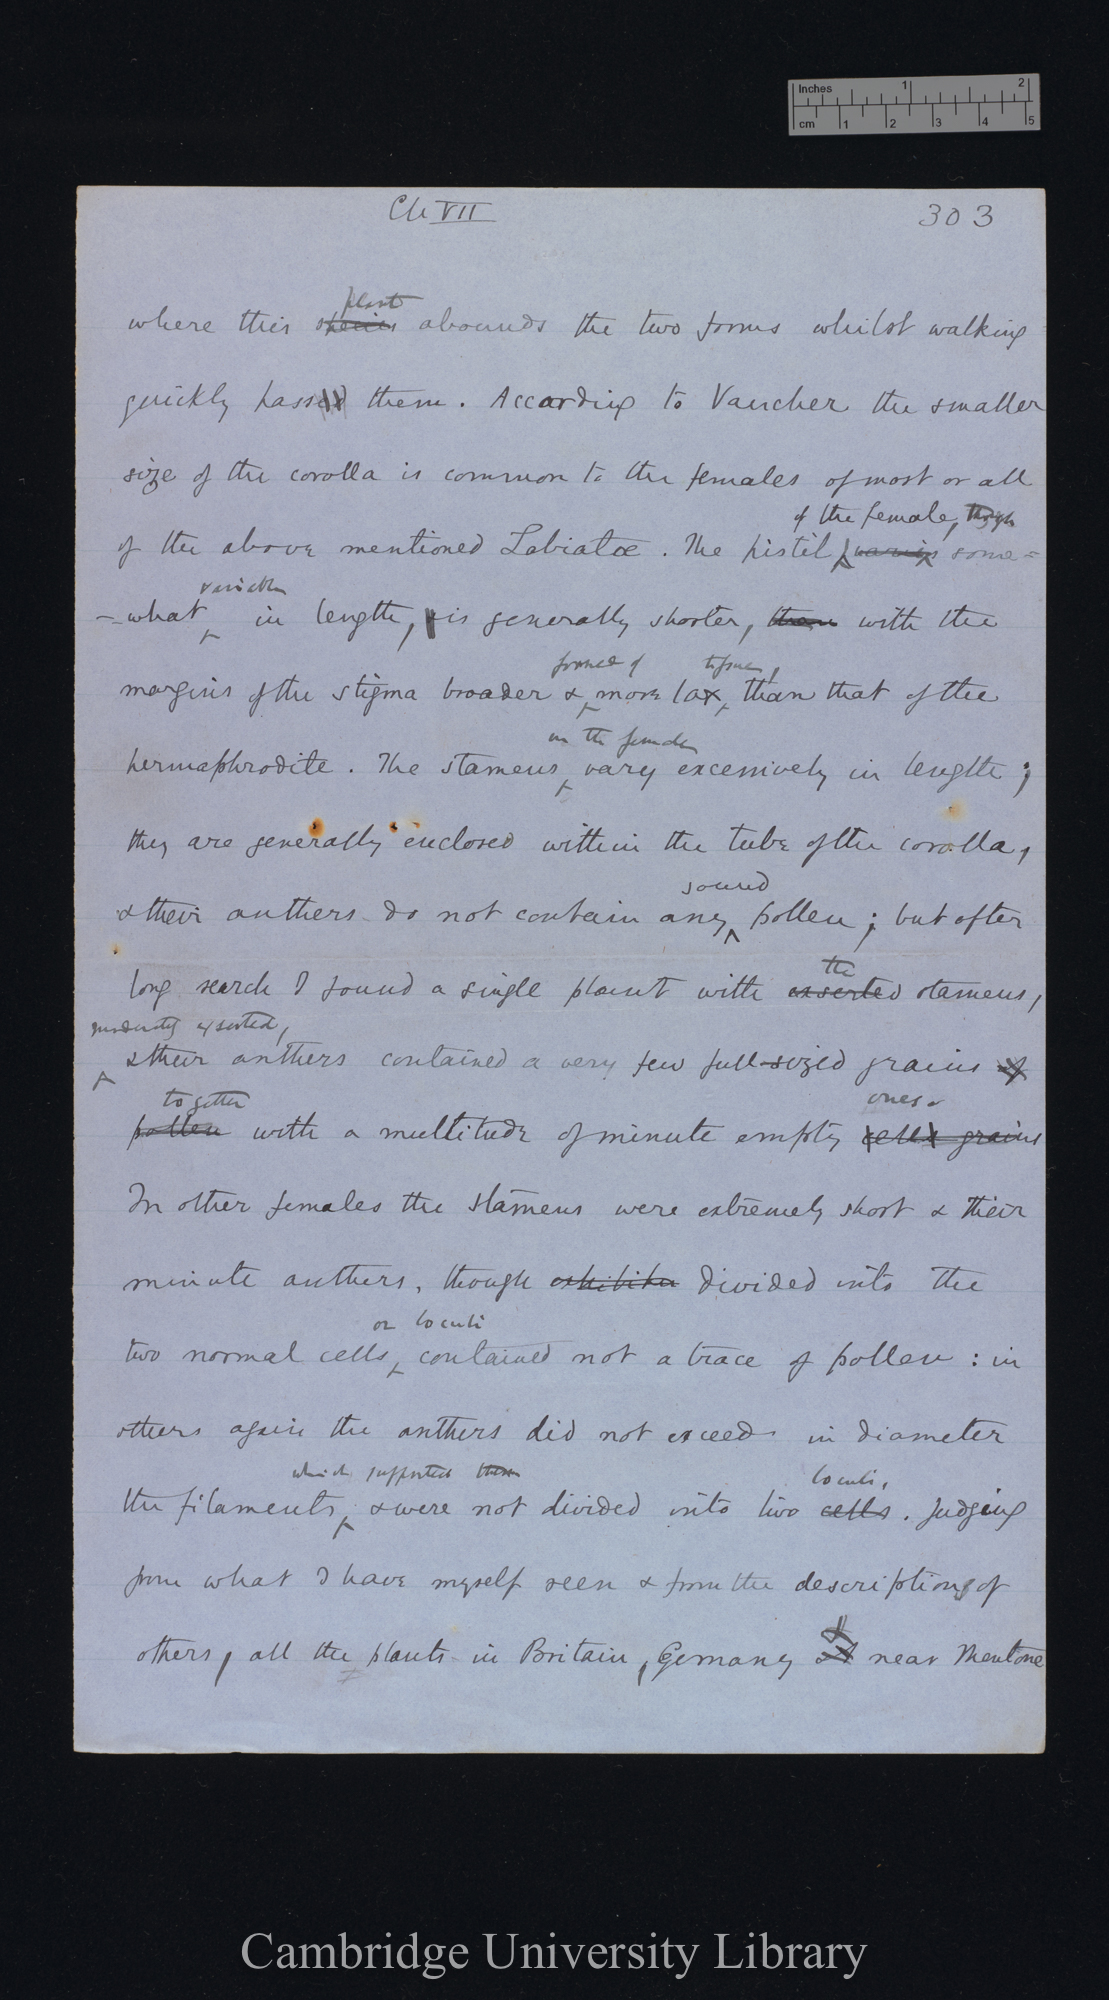 Inches 1 2
cm 1 2 3 4 5
Ch VII
303
plant
where this species abounds the two forms whilst walking
quickly passed them. According to Vaucher the smaller
size of the corolla is common to the females of most or all
of the female, though
of the above mentioned Labiatæ. The pistil, varies some=
variable
=what in length, & is generally shorter, than with the
formed of tissue,
margins of the stigma broader & more lax, than that of the
in the females
hermaphrodite. The stamens vary excessively in length;
they are generally enclosed within the tube of the corolla,
sound
& their anthers do not contain any pollen; but after
the
long search I found a single plant with exserted stamens,
moderately exserted,
& their anthers contained a very few full-sized grains of
together ones.
pollen with a multitude of minute empty cells grains
In other females the stamens were extremely short & their
minute anthers, though exhibiting divided into the
or loculi
two normal cells, contained not a trace of pollen: in
others again the anthers did not exceed in diameter
which supported them
loculi.
the filaments, & were not divided into two cells. Judging
from what I have myself seen & from the descriptions of
others, all the plants in Britain, Germany & near Mentone
Cambridge University Library